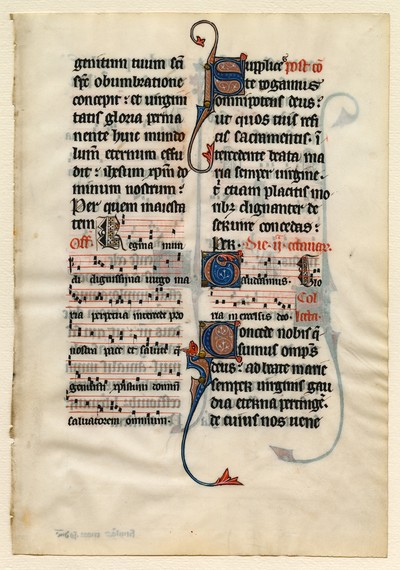 genitum tuum sc̄i
sp̄c obumbratione
concepit : et virgini
tatis gloria perma
nente huic mundo
lum̄ eternum effu
dit : ihesum xp̄m do
minum nostrum :
Per quem maiesta
tem
Off. Regina mun
di dignissima virgo ma
ria perpetua intercede pro
nostra pace et salute q̄
genuisti xpistum domin̄
salvatorem omnium.
Supplices post cō
te rogamus
omnipotens deus :
ut quos tuis refi
cis sacramentis. ī
tercedente beata ma
ria semper virgine.
t etiam placitis mo
ribꝫ dignanter de
servire concedas.
Per.
Gaudeamus. Glo
ria in excelsis deo. Col
lecta.
Concede nobis q̄
sumus omp̄s
deus : ad beate marie
semper virginis gau
dia eterna pertinge.
de cuius nos vene